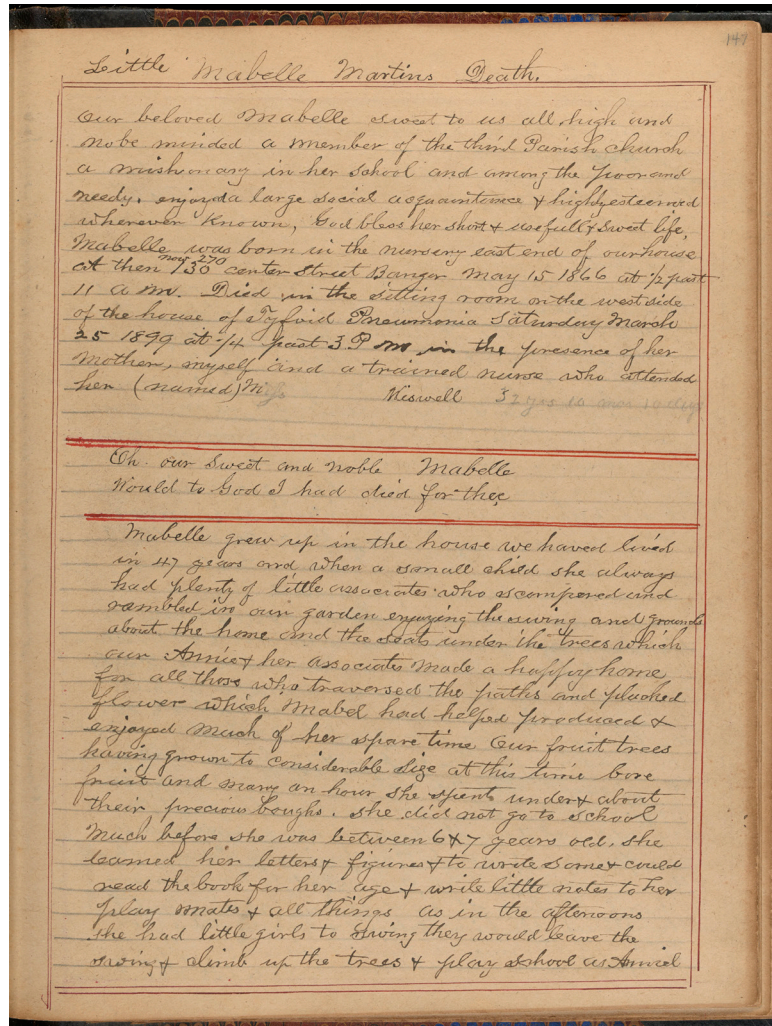 147
Little Mabelle Martins Death.
Our beloved Mabelle sweet to us all, high and
nobe minded a member of the third Parish church
a mishonary in her school and among the poor and
needy. enjoyed a large social acquaintance & highly esteemed
wherever known, God bless her short & usefull & sweet life,
Mabelle was born in the nursery east end of our house
now 270
at then 130 center street Bangor May 15 1866 at 1/2 past
11 a m. Died in the sitting room on the west side
of the house of Tyfoid Pneumonia Saturday March
25 1899 at 1/4 past 3 P m in the presence of her
Mother, myself and a trained nurse who attended
her (named) Miss Wiswell 32 yrs 10 mos 10 days
Oh. our sweet and noble Mabelle
Would to God I had died for thee
Mabelle grew up in the house we haved lived
in 47 years and when a small child she always
had plenty of little associates who scampered and
rambled in our garden enjoying the swing and grounds
about the home and the seats under the trees which
our Annie & her associates made a happy home
for all those who traversed the paths and plucked
flower which Mabel had helped produced &
enjoyed much of her spare time Our fruit trees
having grown to considerable size at this time bore
fruit and many an hour she spent under & about
their precious boughs. she did not go to school
Much before she was between 6 & 7 years old. she
learned her letters & figures & to write some & could
read the book for her age & write little notes to her
play mates & all things as in the afternoons
she had little girls to swing they would leave the
swing & climb up the trees & play school as Annie